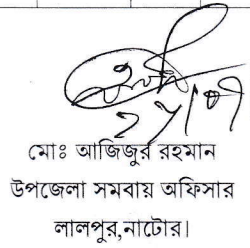 মোঃ আজিজুর রহমান
উপজেলা সমবায় অফিসার
লালপুর,নাটোর।